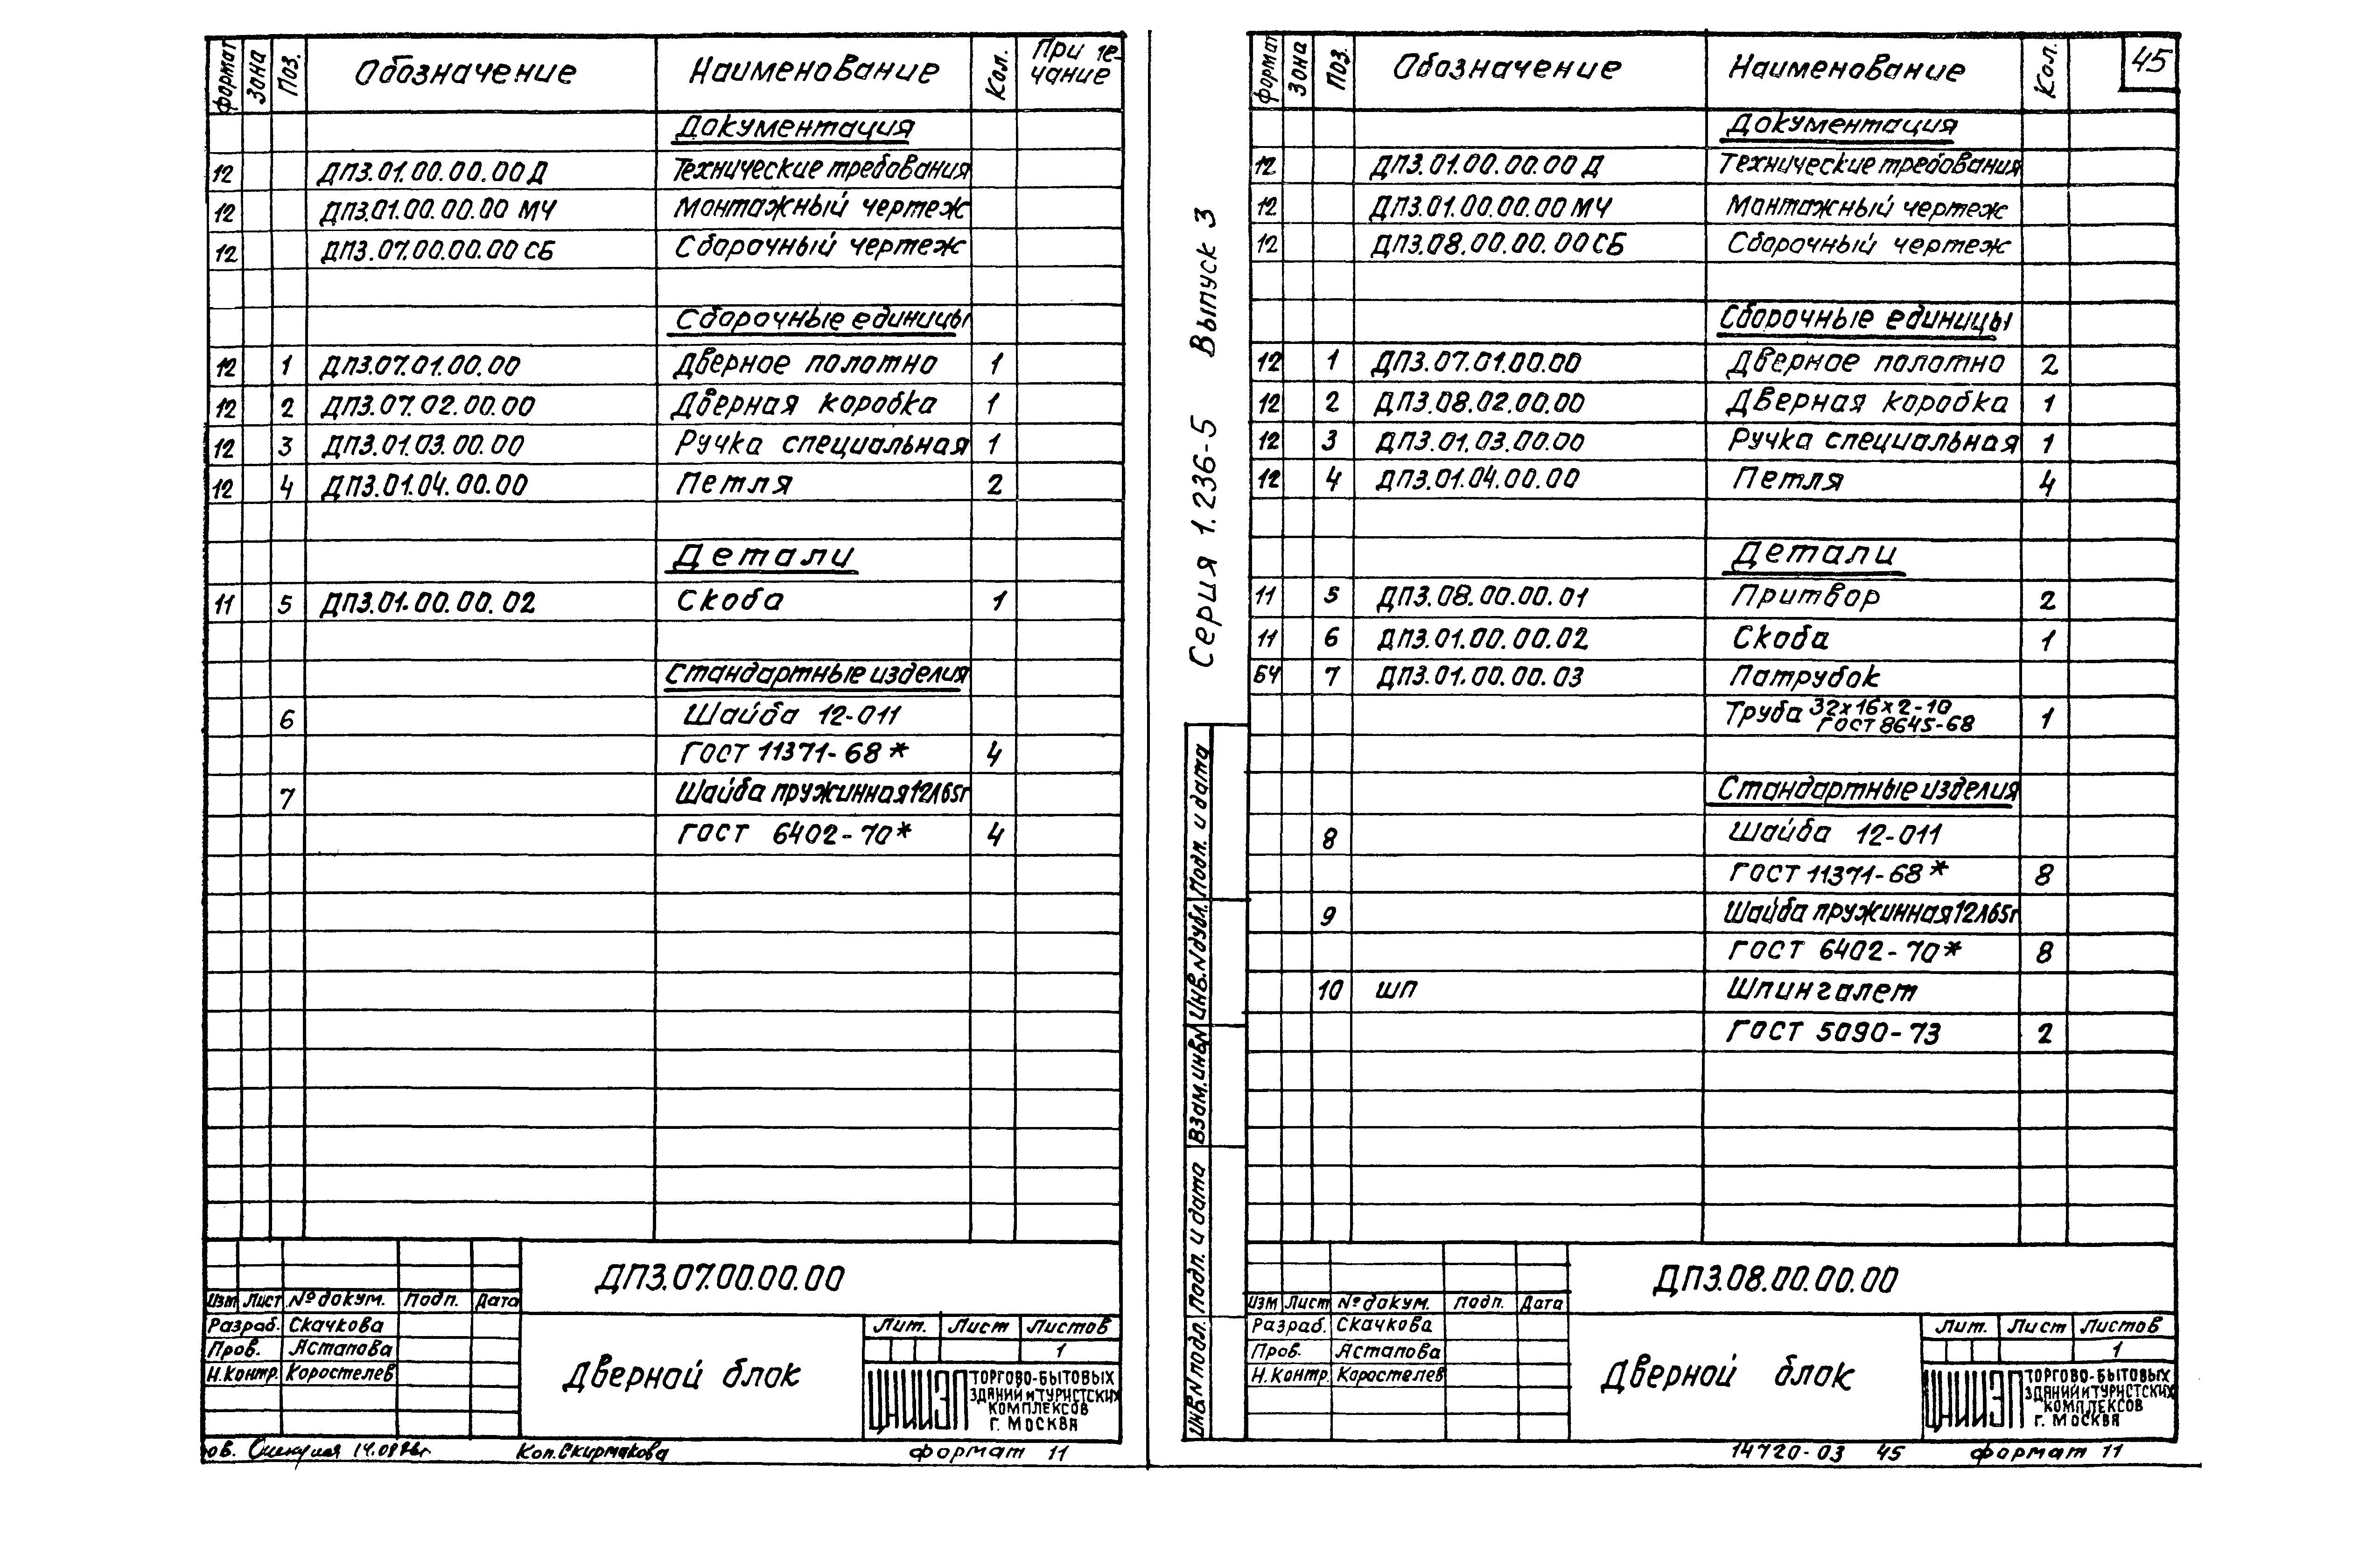 формат Зона Поз. Обозначение Наименование Кол. Приме-
чание
Документация
12 ДП3.01.00.00.00 Д Технические требования
12 ДП3.01.00.00.00 МЧ Монтажный чертеж
12 ДП3.07.00.00.00 СБ Сборочный чертеж
Сборочные единицы
12 1 ДП3.07.01.00.00 Дверное полотно 1
12 2 ДП3.07.02.00.00 Дверная коробка 1
12 3 ДП3.01.03.00.00 Ручка специальная 1
12 4 ДП3.01.04.00.00 Петля 2
Детали
11 5 ДП3.01.00.00.02 Скоба 1
Стандартные изделия
6 Шайба 12-011
ГОСТ 11371-68* 4
7 Шайба пружинная 12Л65Г
ГОСТ 6402-70* 4
ДП3.07.00.00.00
Изм Лист № докум. Подп. Дата
Разраб. Скачкова
Пров. Астапова
Н.контр. Коростелев
Дверной блок
Лит. Лист Листов
1
ЦНИИЭП ТОРГОВО-БЫТОВЫХ
ЗДАНИЙ И ТУРИСТСКИХ
КОМПЛЕКСОВ
Г. МОСКВА
Коп. Скирмакова формат 11
Серия 1.236-5 Выпуск 3
Подп. и дата
Инв.N дубл.
Взам.инвN
Подп. и дата
Инв.N подл.
формат Зона Поз. Обозначение Наименование Кол. 45
Документация
12 ДП3.01.00.00.00 Д Технические требования
12 ДП3.01.00.00.00 МЧ Монтажный чертеж
12 ДП3.08.00.00.00 СБ Сборочный чертеж
Сборочные единицы
12 1 ДП3.07.01.00.00 Дверное полотно 2
12 2 ДП3.08.02.00.00 Дверная коробка 1
12 3 ДП3.01.03.00.00 Ручка специальная 1
12 4 ДП3.01.04.00.00 Петля 4
Детали
11 5 ДП3.08.00.00.01 Притвор 2
11 6 ДП3.01.00.00.02 Скоба 1
БЧ 7 ДП3.01.00.00.03 Патрубок
Труба 32х16х2-10
ГОСТ 8645-68 1
Стандартные изделия
8 Шайба 12-011
ГОСТ 11371-68* 8
9 Шайба пружинная 12Л65Г
ГОСТ 6402-70* 8
10 ШП Шпингалет
ГОСТ 5090-73 2
ДП3.08.00.00.00
Изм Лист № докум. Подп. Дата
Разраб. Скачкова
Пров. Астапова
Н.контр. Коростелев
Дверной блок
Лит. Лист Листов
1
ЦНИИЭП ТОРГОВО-БЫТОВЫХ
ЗДАНИЙ И ТУРИСТСКИХ
КОМПЛЕКСОВ
Г. МОСКВА
14720-03 45 формат 11